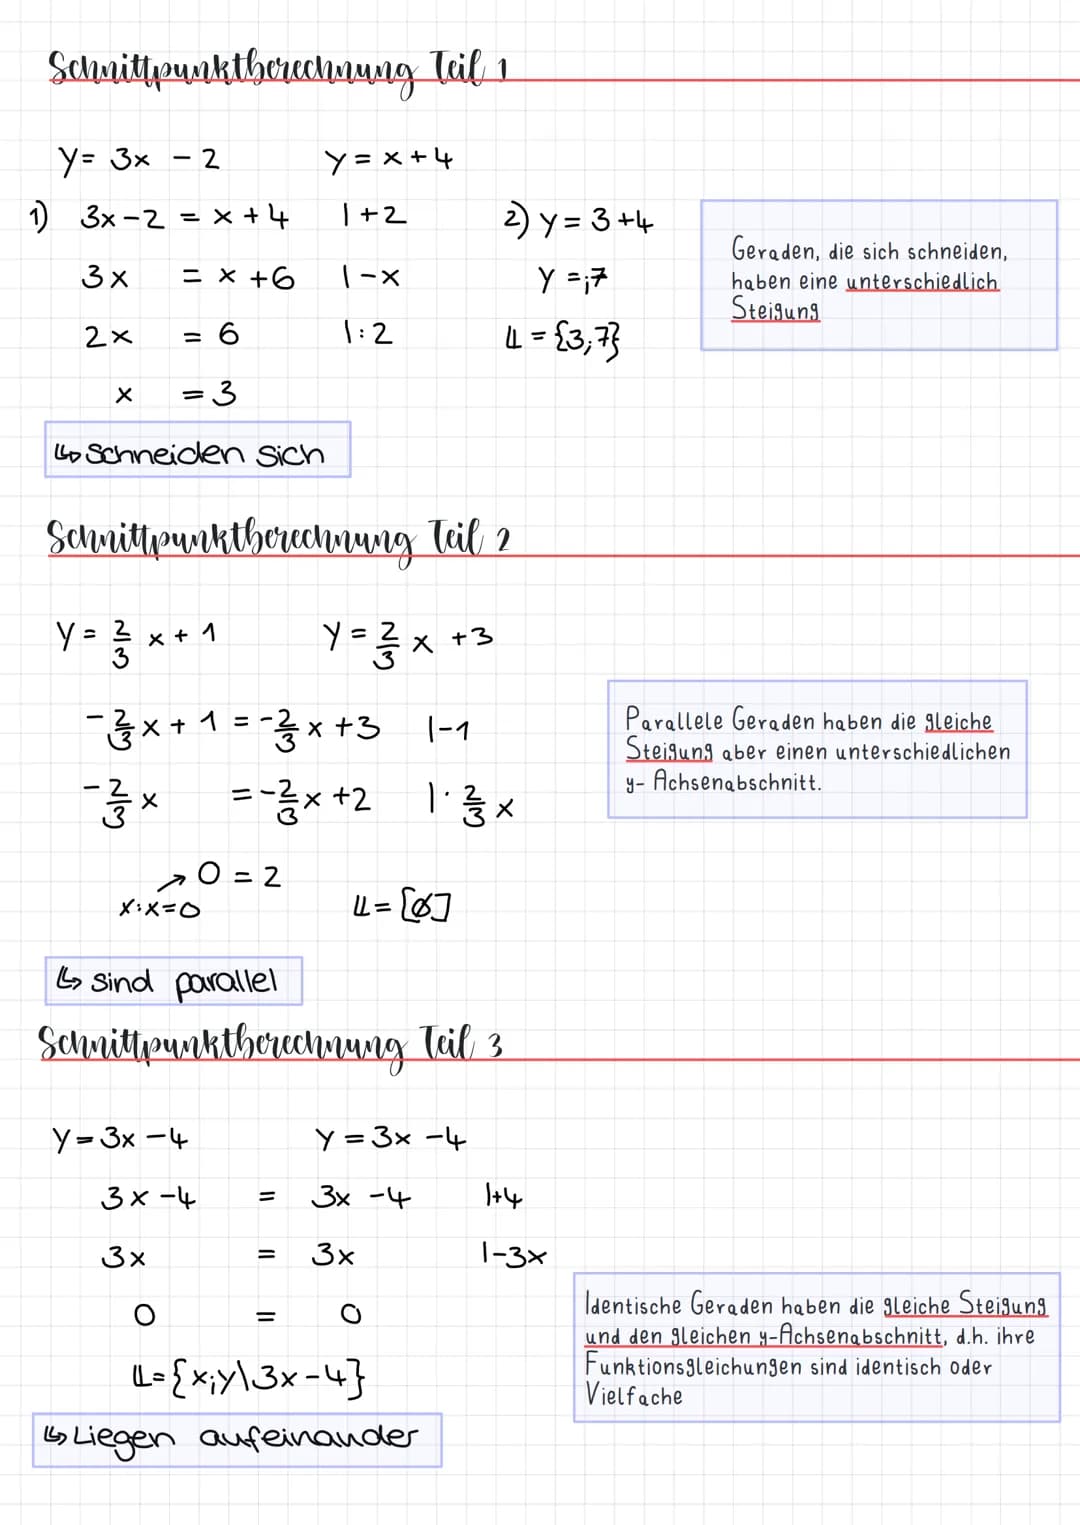 Schnittpunktberechnung Teil 1
y = 3x - 2   y = x + 4
1) 3x - 2 = x + 4   | + 2
3x = x + 6   | - x
2x = 6   | : 2
x = 3
2) y = 3 + 4
y =; 7
𝕃 = {3; 7}
Geraden, die sich schneiden,
haben eine unterschiedlich
Steigung
↳ Schneiden sich
Schnittpunktberechnung Teil 2
y = 2/3 x + 1   y = 2/3 x + 3
- 2/3 x + 1 = - 2/3 x + 3   | - 1
- 2/3 x = - 2/3 x + 2   | · 2/3 x
→ 0 = 2
x : x = 0
𝕃 = [∅]
Parallele Geraden haben die gleiche
Steigung aber einen unterschiedlichen
y- Achsenabschnitt.
↳ sind parallel
Schnittpunktberechnung Teil 3
y = 3x - 4   y = 3x - 4
3x - 4 = 3x - 4   | + 4
3x = 3x   | - 3x
0 = 0
𝕃 = {x; y \ 3x - 4}
Identische Geraden haben die gleiche Steigung
und den gleichen y-Achsenabschnitt, d.h. ihre
Funktionsgleichungen sind identisch oder
Vielfache
↳ Liegen aufeinander